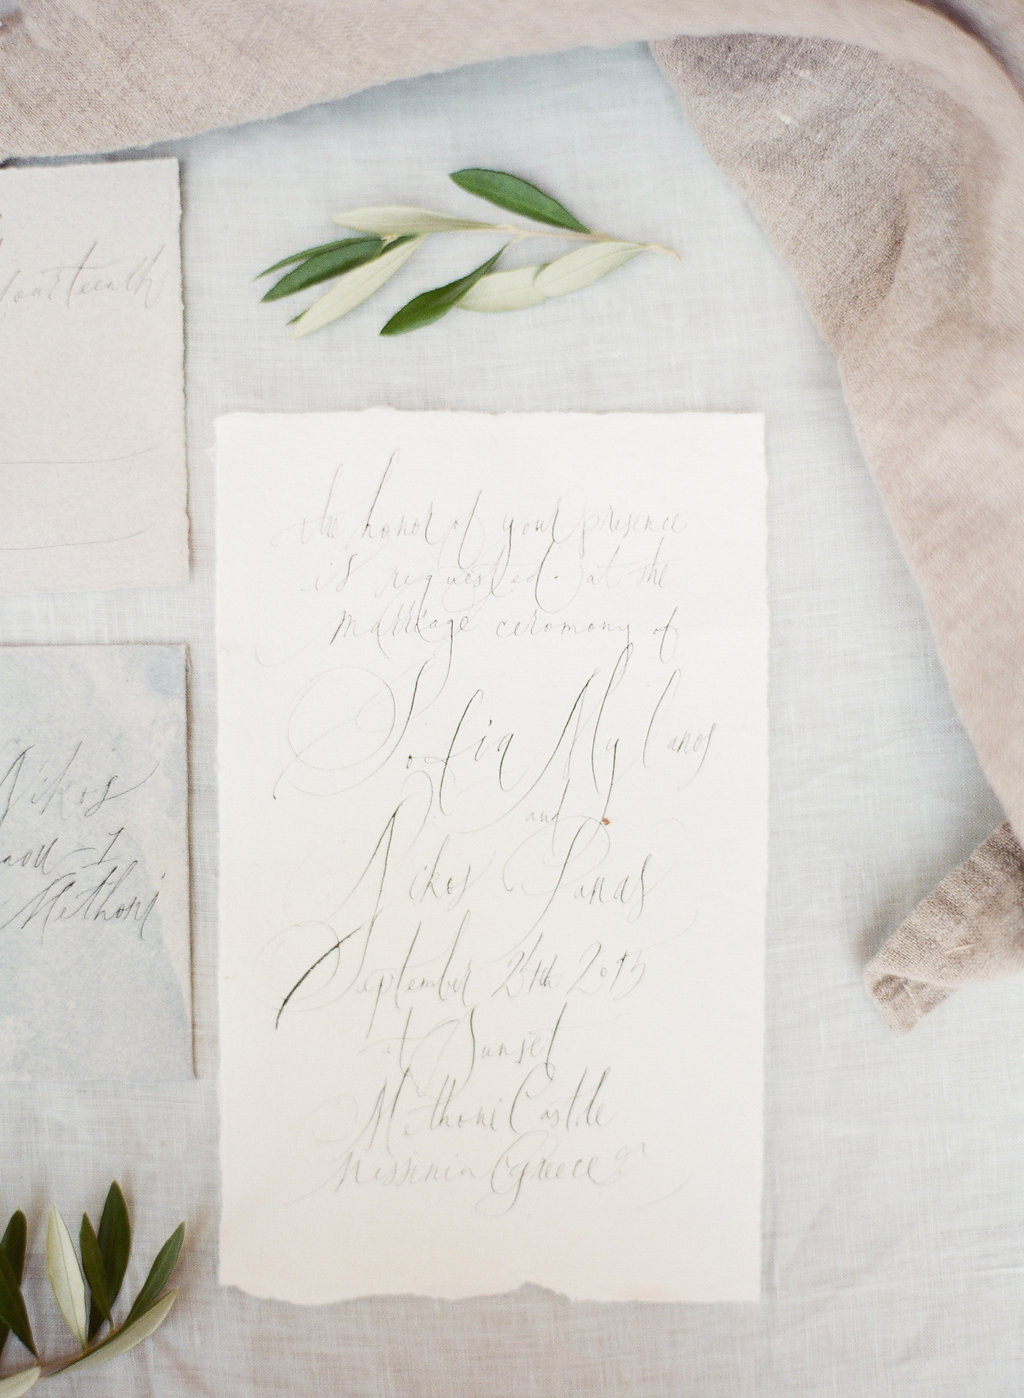 fourteenth
Nikos
1
Methoni
the honor of your presence
is requested at the
marriage ceremony of
Sofia Mylanos
and
Nikos Panas
September 24th 2015
at Sunset
Methoni Castle
Messinia Greece